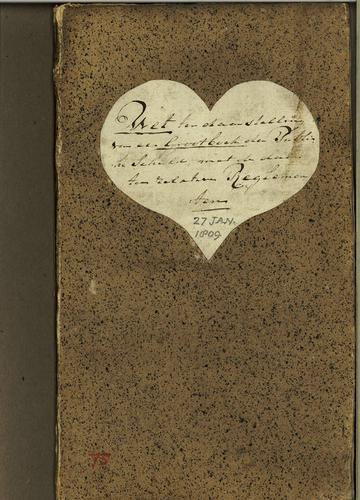 Wet ter daarstelling
van een Grootboek der Publie
ke Schuld, met de daar
toe relative Reglemen
ten
27 JAN.
1809
75